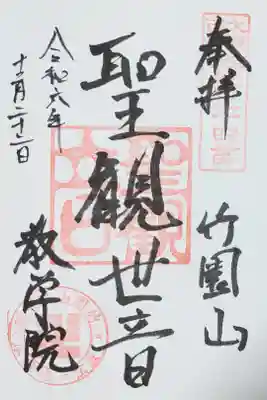 奉拝
竹園山
聖観世音
令和六年
十一月二十二日
教学院